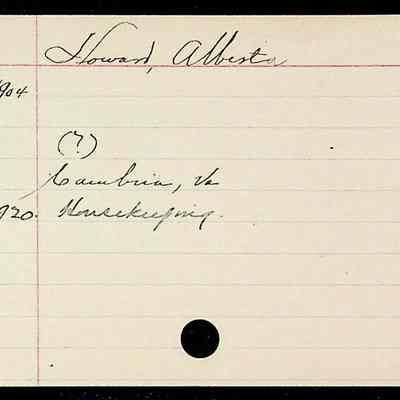 Howard, Alberta
1904
(?)
Cambria, Va
920. Housekeeping.